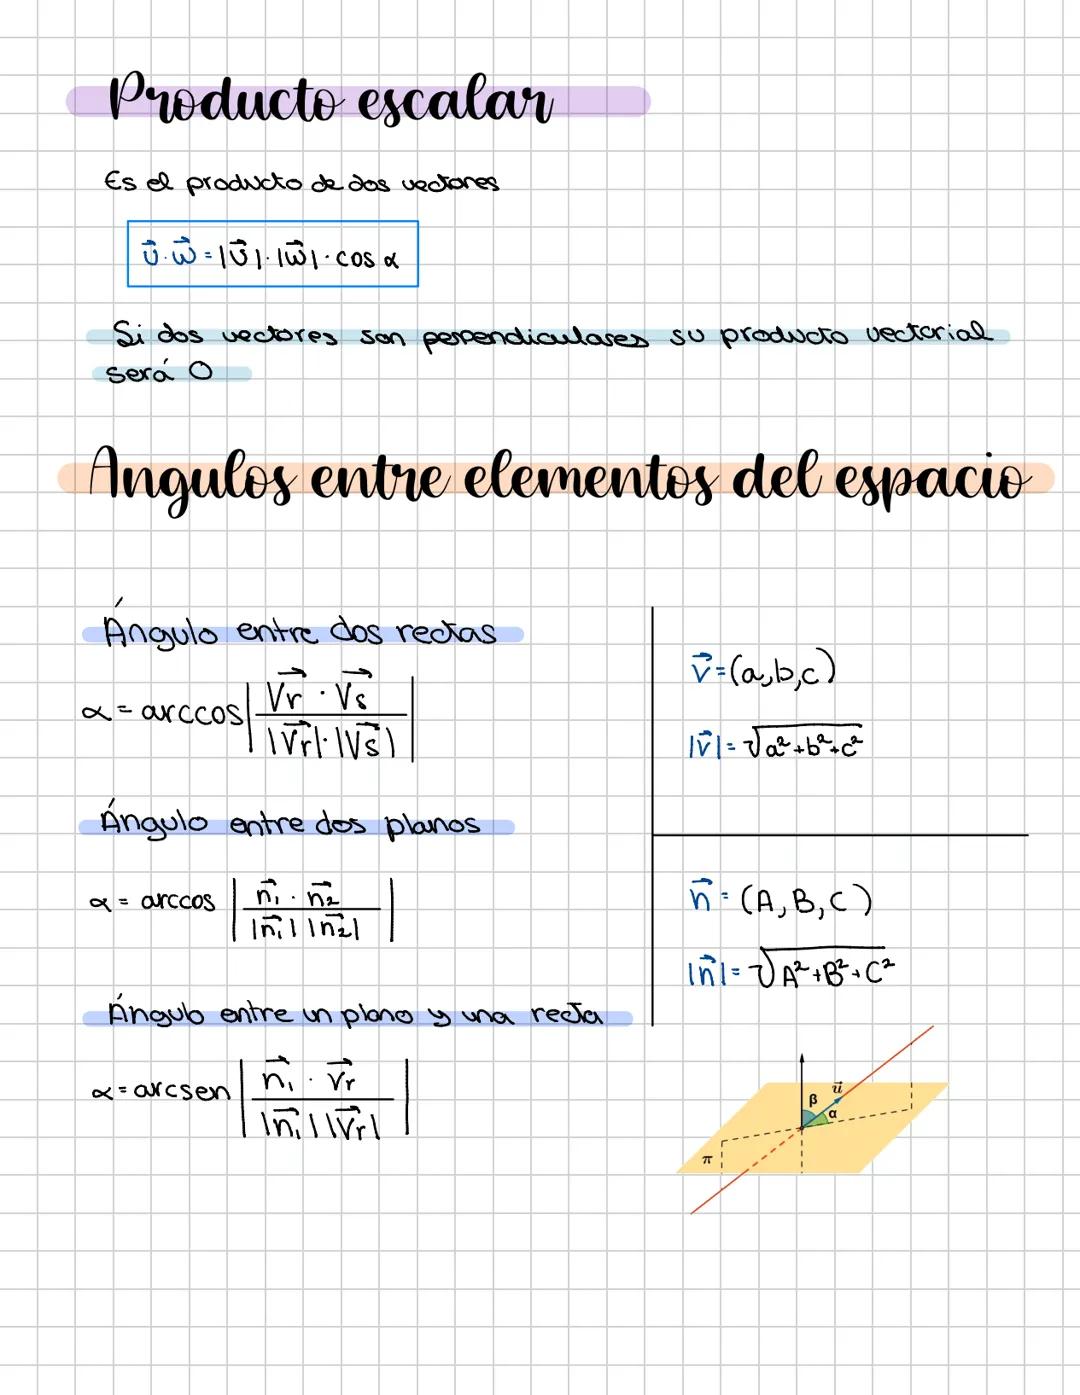 Producto escalar
Es el producto de dos vectores
v⃗·w⃗ = |v⃗|·|w⃗|·cos α
Si dos vectores son perpendiculares su producto vectorial
será 0
Angulos entre elementos del espacio
Ángulo entre dos rectas
α = arccos |(Vr⃗ · Vs⃗) / (|Vr⃗|·|Vs⃗|)|
v⃗ = (a,b,c)
|v⃗| = √a²+b²+c²
Ángulo entre dos planos
α = arccos |(n₁⃗ · n₂⃗) / (|n₁⃗| |n₂⃗|)|
n⃗ = (A,B,C)
|n⃗| = √A²+B²+C²
Ángulo entre un plano y una recta
α = arcsen |(n₁⃗ · Vr⃗) / (|n₁⃗| |Vr⃗|)|
u⃗
β
α
π